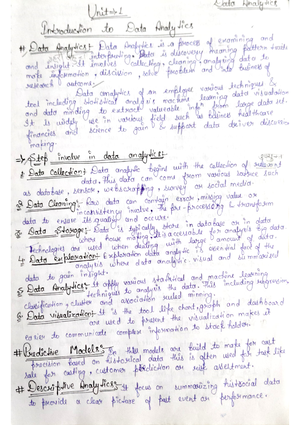 Data Analytics
Unit-1
Introduction to Data Analytics
# Data Analytics:- Data Analytics is a process of examining and
interpreting. Data is discovery meaning pattern trends
and insight. It involves collecting, cleaning, analysing data to
make information, discission, solve problem and business of
research outcome.
Data analytics of an employee various technique &
tool including statistical analysis machine learning data visualisation
and data minding to extract valuable from large data set.
It is widely use in various field such as business healthcare
financies and science to gain & support data driver discission
making.
Step involve in data analytics:-
1. Data Collection:- Data analytic begins with the collection of relevant
data. This data can come from various surface such
as database, sensor, webscrapping, survey or social media.
2. Data Cleaning:- Raw data can contain error, missing value or
inconsistency involve. The pre-processing & transform
data to ensure its quality and accurate.
3. Data Storage:- Data is typically store in database or in data
where house making it is accessable for analysis. Big data
Technologies are used when dealing with large amount of data.
4. Data Exploration:- Exploration data is essential part of the
analysis where data analytic visual and summarized
data to gain insight.
5. Data Analytics:- It apply various statistical and machine learning
techniques to analysis the data. This including regression,
classification, cluster and association ruled minning.
6. Data visualization:- It is the tool like chart, graph and dashboard
are used to present the visualization makes it
easier to communicate complex information to stack holder.
# Predictive Models:- In this models are build to make for cast
precision based on historical data this is often used for task like
sale for casting, customer prediction or risk assestment.
# Descriptive Analytics:- It focus on summarizing histsocial data
to provide a clear picture of past event or performance.